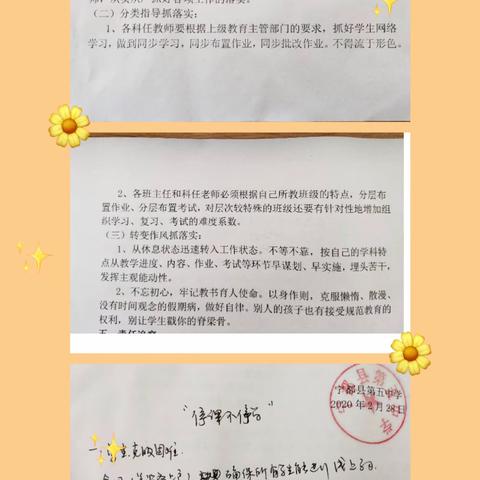 （二）分类指导抓落实：
1、各科任教师要根据上级教育主管部门的要求，抓好学生网络
学习，做到同步学习，同步布置作业，同步批改作业。不得流于形色。
2、各班主任和科任老师必须根据自己所教班级的特点，分层布
置作业、分层布置考试，对层次较特殊的班级还要有针对性地增加组
织学习、复习、考试的难度系数。
（三）转变作风抓落实：
1、从休息状态迅速转入工作状态。不等不靠，按自己的学科特
点从教学进度、内容、作业、考试等环节早谋划、早实施，埋头苦干，
发挥主观能动性。
2、不忘初心，牢记教书育人使命。以身作则，克服懒惰、散漫、
没有时间观念的假期病，做好自律。别人的孩子也有接受规范教育的
权利，别让学生戳你的脊梁骨。
宁都县第五中学
2020年2月28日
"停课不停学"